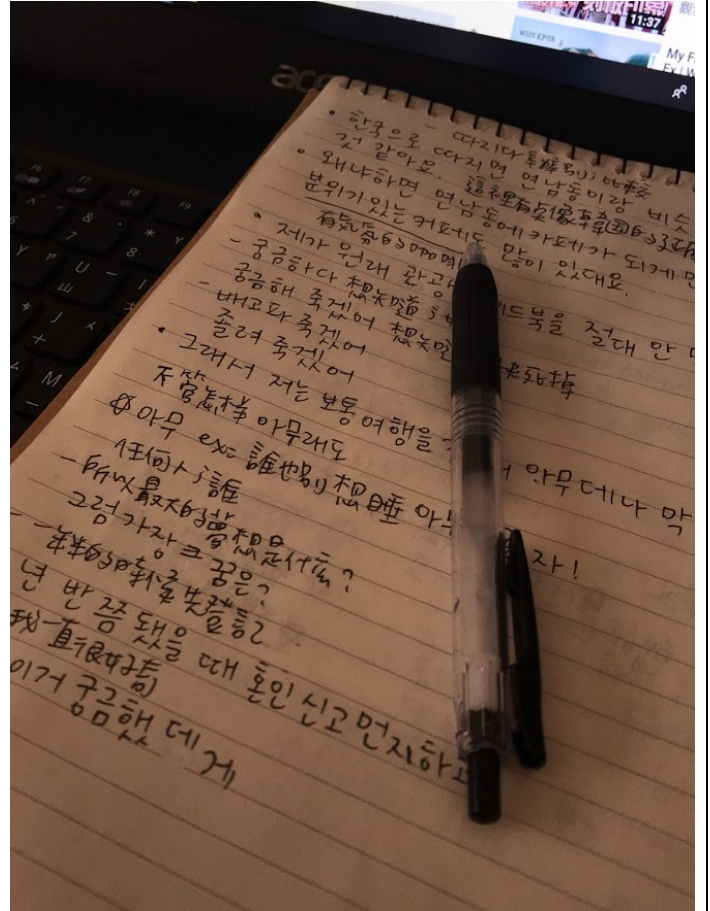 11:37
WHY EPOS
My F
Ex | W
ac
• 한국으로 - 따지다
한국으로 따지면 연남동이랑 비슷
것 같아요. 這裡有點像韓國的
• 왜냐하면 연남동에 카페가 되게 많
분위기 있는 커페도 많이 있대요.
有氣氛的
• 제가 원래 관광 드북을 절대 안
- 궁금하다 想知道
궁금해 죽겠어 想知道 死掉
- 배고파 죽겠어
졸려 죽겠어
• 그래서 저는 보통 여행을 아무데나 막
不管怎樣 아무래도
아무 ex: 誰也別想睡 아 자!
任何+誰
- 所以最大的夢想是什麼?
그럼 가장 큰 꿈은?
- 一年半的時候先登記
년 반 쯤 됐을 때 혼인신고 먼저하고
我一直很好奇
이거 궁금했데
게